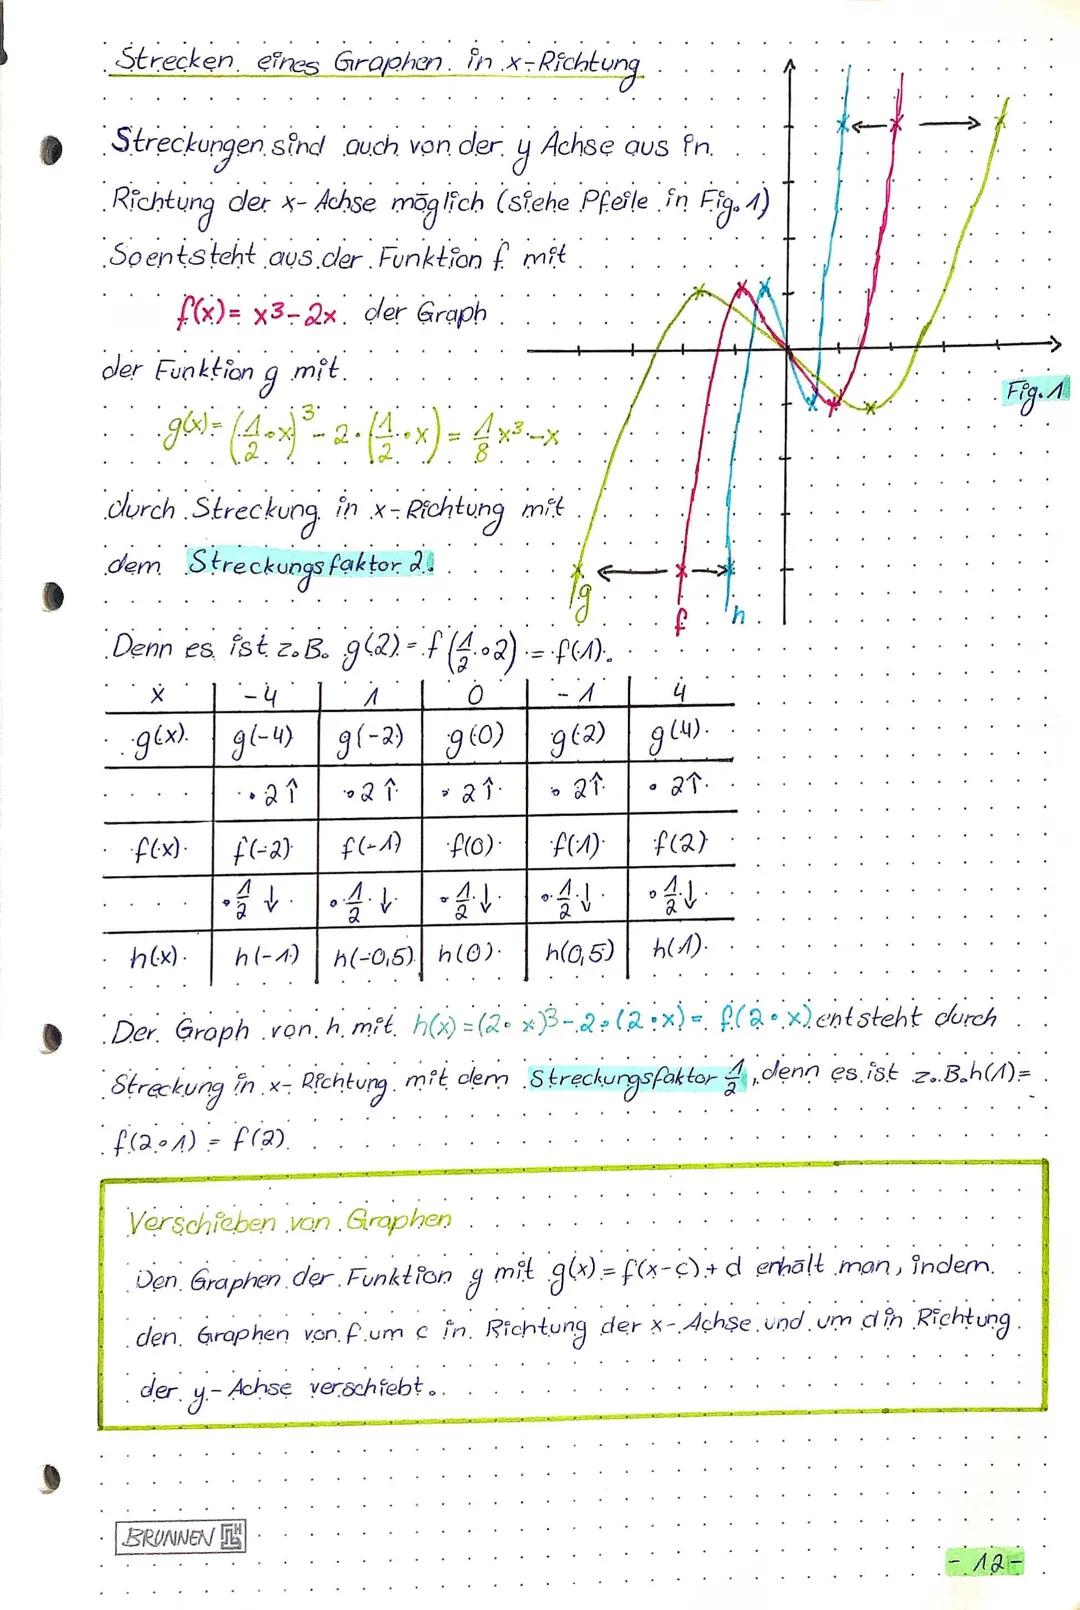 Strecken eines Graphen in x-Richtung
Streckungen sind auch von der y Achse aus in
Richtung der x-Achse möglich (siehe Pfeile in Fig. 1)
So entsteht aus der Funktion f mit
f(x) = x³-2x der Graph
der Funktion g mit
Fig. 1
g(x) = (1/2 · x)³ - 2 · (1/2 · x) = 1/8 x³ - x
durch Streckung in x-Richtung mit
dem Streckungsfaktor 2.
g f h
Denn es ist z.B. g(2) = f(1/2 · 2) = f(1).
x -4 1 0 -1 4
g(x) g(-4) g(-2) g(0) g(2) g(4)
·2↑ ·2↑ ·2↑ ·2↑ ·2↑
f(x) f(-2) f(-1) f(0) f(1) f(2)
·1/2↓ ·1/2↓ ·1/2↓ ·1/2↓ ·1/2↓
h(x) h(-1) h(-0,5) h(0) h(0,5) h(1)
Der Graph von h mit h(x) = (2· x)³ - 2·(2·x) = f(2·x) entsteht durch
Streckung in x-Richtung mit dem Streckungsfaktor 1/2, denn es ist z.B. h(1) =
f(2·1) = f(2)
Verschieben von Graphen
Den Graphen der Funktion g mit g(x) = f(x-c) + d erhält man, indem
den Graphen von f um c in Richtung der x-Achse und um d in Richtung
der y-Achse verschiebt.
BRUNNEN
- 12 -